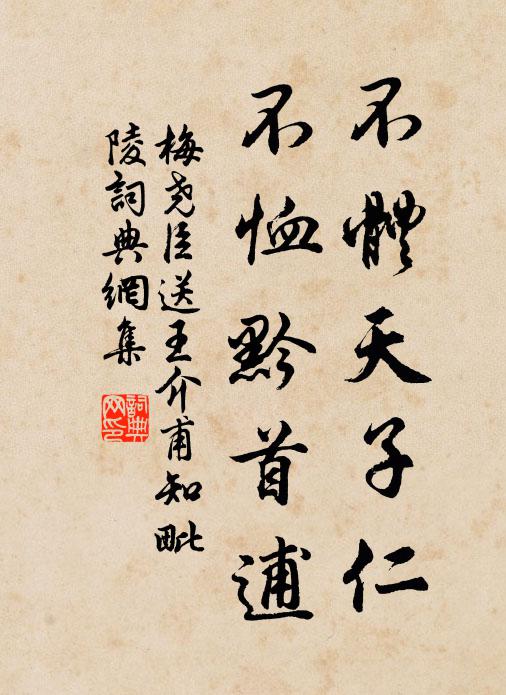 不體天子仁
不恤黔首逋
梅堯臣送王介甫知毗
陵詞典網集
詞典
网印